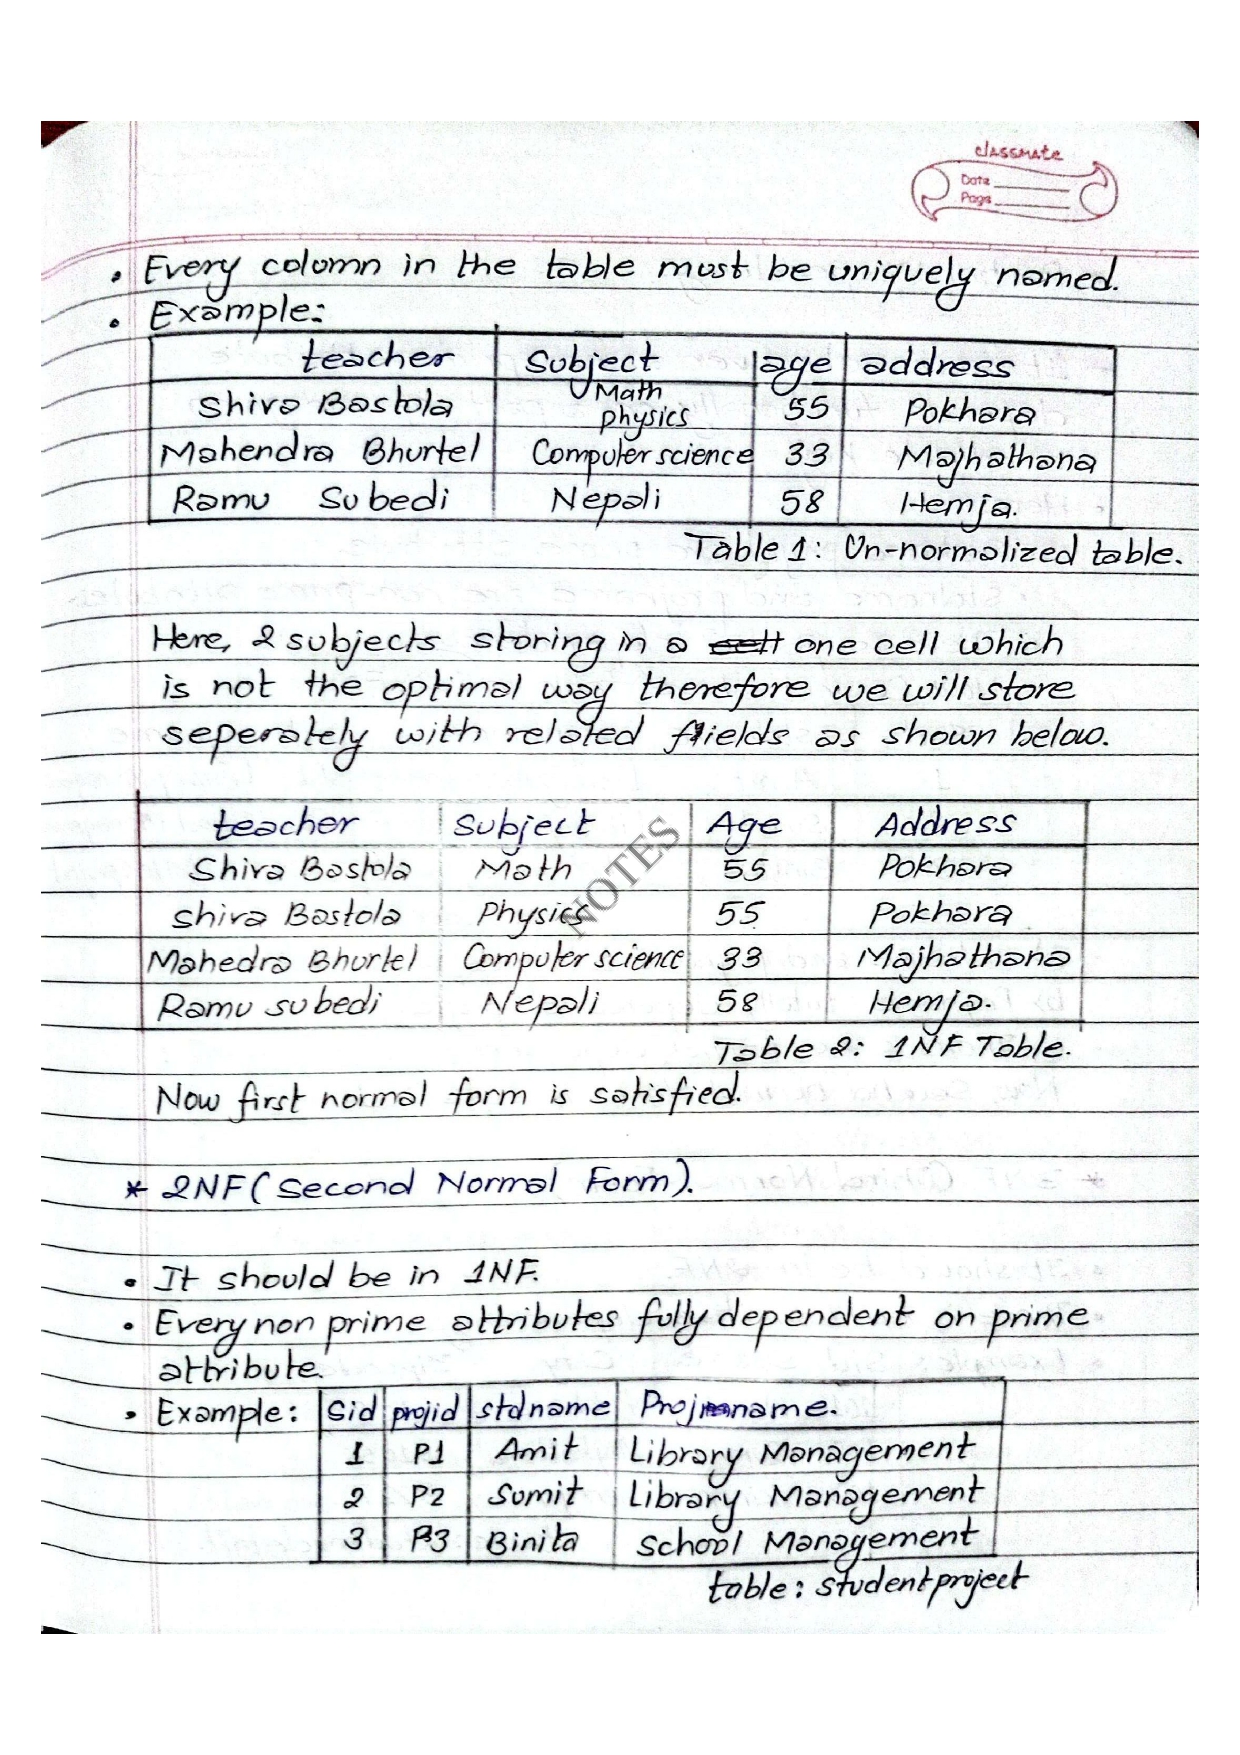 classmate
Date
Page
• Every column in the table must be uniquely named.
• Example:
teacher Subject age address
Shiva Bastola Math physics 55 Pokhara
Mahendra Bhurtel Computer science 33 Majhathana
Ramu Subedi Nepali 58 Hemja.
Table 1: Un-normalized table.
Here, 2 subjects storing in a cell one cell which
is not the optimal way therefore we will store
seperately with related fields as shown below.
teacher Subject Age Address
Shiva Bastola Math 55 Pokhara
shiva Bastola Physics 55 Pokhara
Mahedra Bhurtel Computer science 33 Majhathana
Ramu subedi Nepali 58 Hemja.
NOTES
Table 2: 1NF Table.
Now first normal form is satisfied.
* 2NF (Second Normal Form).
• It should be in 1NF.
• Every non prime attributes fully dependent on prime
attribute.
• Example: Sid projid stdname Projname.
1 P1 Amit Library Management
2 P2 Sumit Library Management
3 P3 Binita School Management
table: studentproject